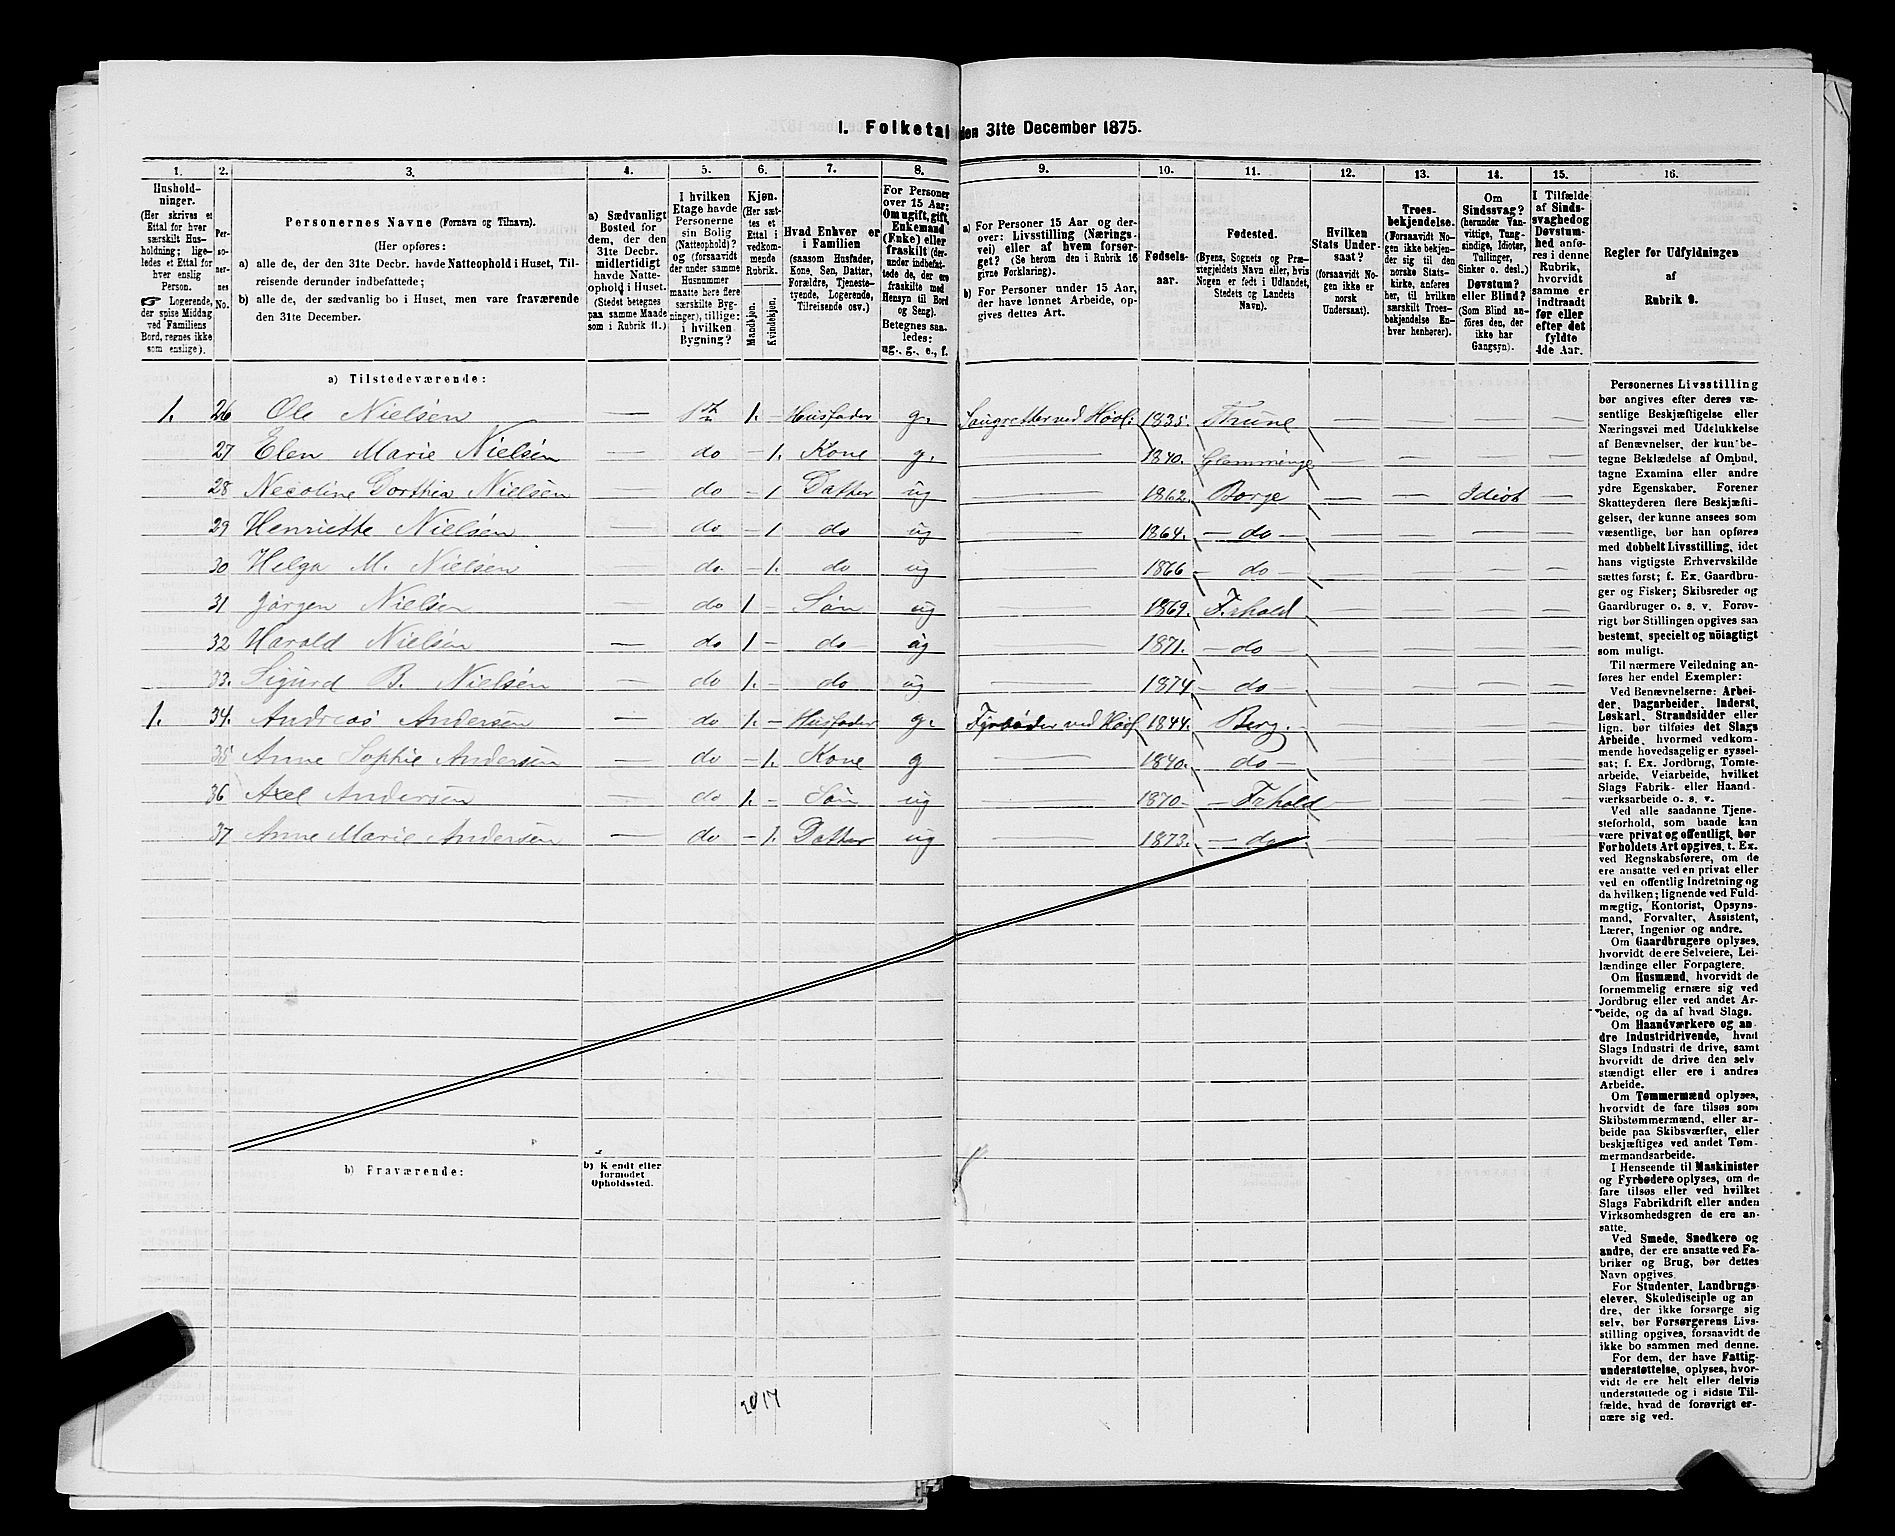 1. Folketal den 31te December 1875.
1. 2. 3. 4. 5. 6. 7. 8. 9. 10. 11. 12. 13. 14. 15. 16.
Hushold-
ninger.
(Her skrives et
Ettal for hver
særskilt Hus-
holdning; lige-
ledes et Ettal for
hver enslig
Person.
☞ Logerende,
der spise Middag
ved Familiens
Bord, regnes ikke
som enslige).
Per-
so-
ner-
nes
No.
Personernes Navne (Fornavn og Tilnavn).
(Her opføres:
a) alle de, der den 31te Decbr. havde Natteophold i Huset, Til-
reisende derunder indbefattede;
b) alle de, der sædvanlig bo i Huset, men vare fraværende
den 31te December.
a) Sædvanligt
Bosted for
dem, der den
31te Decbr.
midlertidigt
havde Natte-
ophold i Huset.
(Stedet betegnes
paa samme Maade
som i Rubrik 11.)
I hvilken
Etage havde
Personerne
sin Bolig
(Natteophold)?
og (forsaavidt
der under samme
Husnummer
maatte høre flere
særskilte Byg-
ninger), tillige:
i hvilken
Bygning?
Kjøn.
(Her sæt-
tes et
Ettal i
vedkom-
mende
Rubrik.
Mandkjøn.
Kvindekjøn.
Hvad Enhver er
i Familien
(saasom Husfader,
Kone, Søn, Datter,
Forældre, Tjeneste-
tyende, Logerende,
Tilreisende osv.)
For Personer
over 15 Aar:
Om ugift, gift,
Enkemand
(Enke) eller
fraskilt (der-
under indbefat-
tede de, der ere
fraskilte med
Hensyn til Bord
og Seng).
Betegnes saa-
ledes:
ug., g., e., f.
a) For Personer 15 Aar og der-
over: Livsstilling (Nærings-
vei) eller af hvem forsør-
get? (Se herom den i Rubrik 16
givne Forklaring).
b) For Personer under 15 Aar,
der have lønnet Arbeide, op-
gives dettes Art.
Fødsels-
aar.
Fødested.
(Byens, Sognets og Præ-
stegjeldets Navn eller, hvis
Nogen er født i Udlandet,
Stedets og Landets
Navn).
Hvilken
Stats Under-
saat?
(forsaavidt No-
gen ikke er
norsk
Undersaat).
Troes-
bekjendelse.
(Forsaavidt No-
gen ikke bekjen-
der sig til den
norske Stats-
kirke, anføres
her, til hvilken
særskilt Troes-
bekjendelse En-
hver henhører).
Om
Sindssvag?
(herunder Van-
vittige, Tung-
sindige, Idioter,
Tullinger,
Sinker o. desl.)
Døvstum?
eller Blind?
(Som Blind an-
føres den, der
ikke har
Gangsyn).
I Tilfælde
af Sinds-
svaghed og
Døvstum-
hed anfø-
res i denne
Rubrik,
hvorvidt
samme er
indtraadt
før eller
efter det
fyldte
4de Aar.
Regler for Udfyldningen
af
Rubrik 9.
a) Tilstedeværende:
1. 26 Ole Nielsen — 1ste 1. — Husfader g. ved Høvl: 1835. Thune — — — —
27 Elen Marie Nielsen — do — 1. Kone g. — 1840. Glemminge — — — —
28 Necoline Dorthea Nielsen — do — 1 Datter ug — 1862. Borge — — Idiot —
29 Henriette Nielsen — do — 1 do ug — 1864. — do — — — — —
30 Helga M. Nielsen — do — 1. do ug — 1866 — do — — — — —
31 Jørgen Nielsen — do 1 — Søn ug — 1869. F.rhald — — — —
32 Harald Nielsen — do 1 — do ug — 1871. — do — — — — —
33. Sigurd B. Nielsen — do 1. — do ug — 1874 — do — — — — —
1. 34. Andreas Andersen — do 1. — Husfader g. Fyrbøder ved Høvl 1844. Berg. — — — —
35 Anne Sophie Andersen — do — 1. Kone g — 1840. — do — — — — —
36 Axel Andersen — do 1. — Søn ug — 1870 — F.rhald — — — —
37 Anne Marie Andersen — do — 1. Datter ug — 1873. — do — — — —
b) Fraværende:
b) Kjendt eller
formodet
Opholdssted.
2017
Personernes Livsstilling
bør angives efter deres væ-
sentlige Beskjæftigelse eller
Næringsvei med Udelukkelse
af Benævnelser, der kun be-
tegne Beklædelse af Ombud,
tagne Examina eller andre
ydre Egenskaber. Forener
Skatteyderen flere Beskjæfti-
gelser, der kunne ansees som
væsentlige, bør han opføres
med dobbelt Livsstilling, idet
hans vigtigste Erhvervskilde
sættes først; f. Ex. Gaardbru-
ger og Fisker; Skibsreder og
Gaardbruger o. s. v. Forøv-
rigt bør Stillingen opgives saa
bestemt, specielt og nöiagtigt
som muligt.
Til nærmere Veiledning an-
føres her endel Exempler:
Ved Benævnelserne: Arbei-
der, Dagarbeider, Inderst,
Løskarl, Strandsidder eller
lign. bør tilføies det Slags
Arbeide, hvormed vedkom-
mende hovedsagelig er syssel-
sat; f. Ex. Jordbrug, Tomte-
arbeide, Veiarbeide, hvilket
Slags Fabrik- eller Haand-
værksarbeide o. s. v.
Ved alle saadanne Tjene-
steforhold, som baade kan
være privat og offentligt, bør
Forholdets Art opgives, t. Ex.
ved Regnskabsførere, om de
ere ansatte ved en privat eller
ved en offentlig Indretning og
da hvilken; lignende ved Fuld-
mægtig, Kontorist, Opsyns-
mand, Forvalter, Assistent,
Lærer, Ingeniør og andre.
Om Gaardbrugere oplyses,
hvorvidt de ere Selveiere, Lei-
lændinge eller Forpagtere.
Om Husmænd, hvorvidt de
fornemmelig ernære sig ved
Jordbrug eller ved andet Ar-
beide, og da af hvad Slags.
Om Haandværkere og an-
dre Industridrivende, hvad
Slags Industri de drive, samt
hvorvidt de drive den selv-
stændigt eller ere i andres
Arbeide.
Om Tømmermænd oplyses,
hvorvidt de fare tilsøs som
Skibstømmermænd, eller ar-
beide paa Skibsværfter, eller
beskjæftiges ved andet Tøm-
mermandsarbeide.
I Henseende til Maskinister
og Fyrbødere oplyses, om de
fare tilsøs eller ved hvilket
Slags Fabrikdrift eller anden
Virksomhedsgren de ere an-
satte.
Ved Smede, Snedkere og
andre, der ere ansatte ved Fa-
briker og Brug, bør dettes
Navn opgives.
For Studenter, Landbrugs-
elever, Skoledisciple og an-
dre, der ikke forsørge sig
selv, bør Forsørgerens Livs-
stilling opgives, forsaavidt de
ikke bo sammen med denne.
For dem, der have Fattig-
understøttelse, oplyses, hvor-
vidt de ere helt eller delvis
understøttede og i sidste Til-
fælde, hvad de forøvrigt er-
nære sig ved.